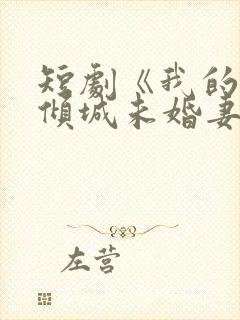 短劇《我的
傾城未婚妻
左营